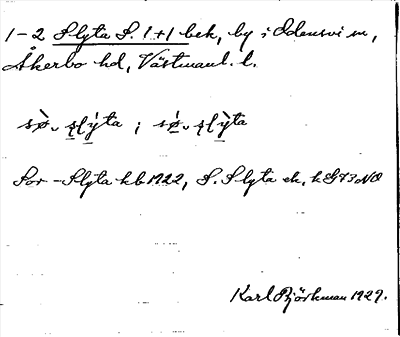 1-2 Slyta S. 1+1 bek, by i Odensvi sn,
Åkerbo hd, Västmanl. l.
Sör-Slyta kb 1922, S. Slyta ek. k G73NO
Karl Björkman 1929.